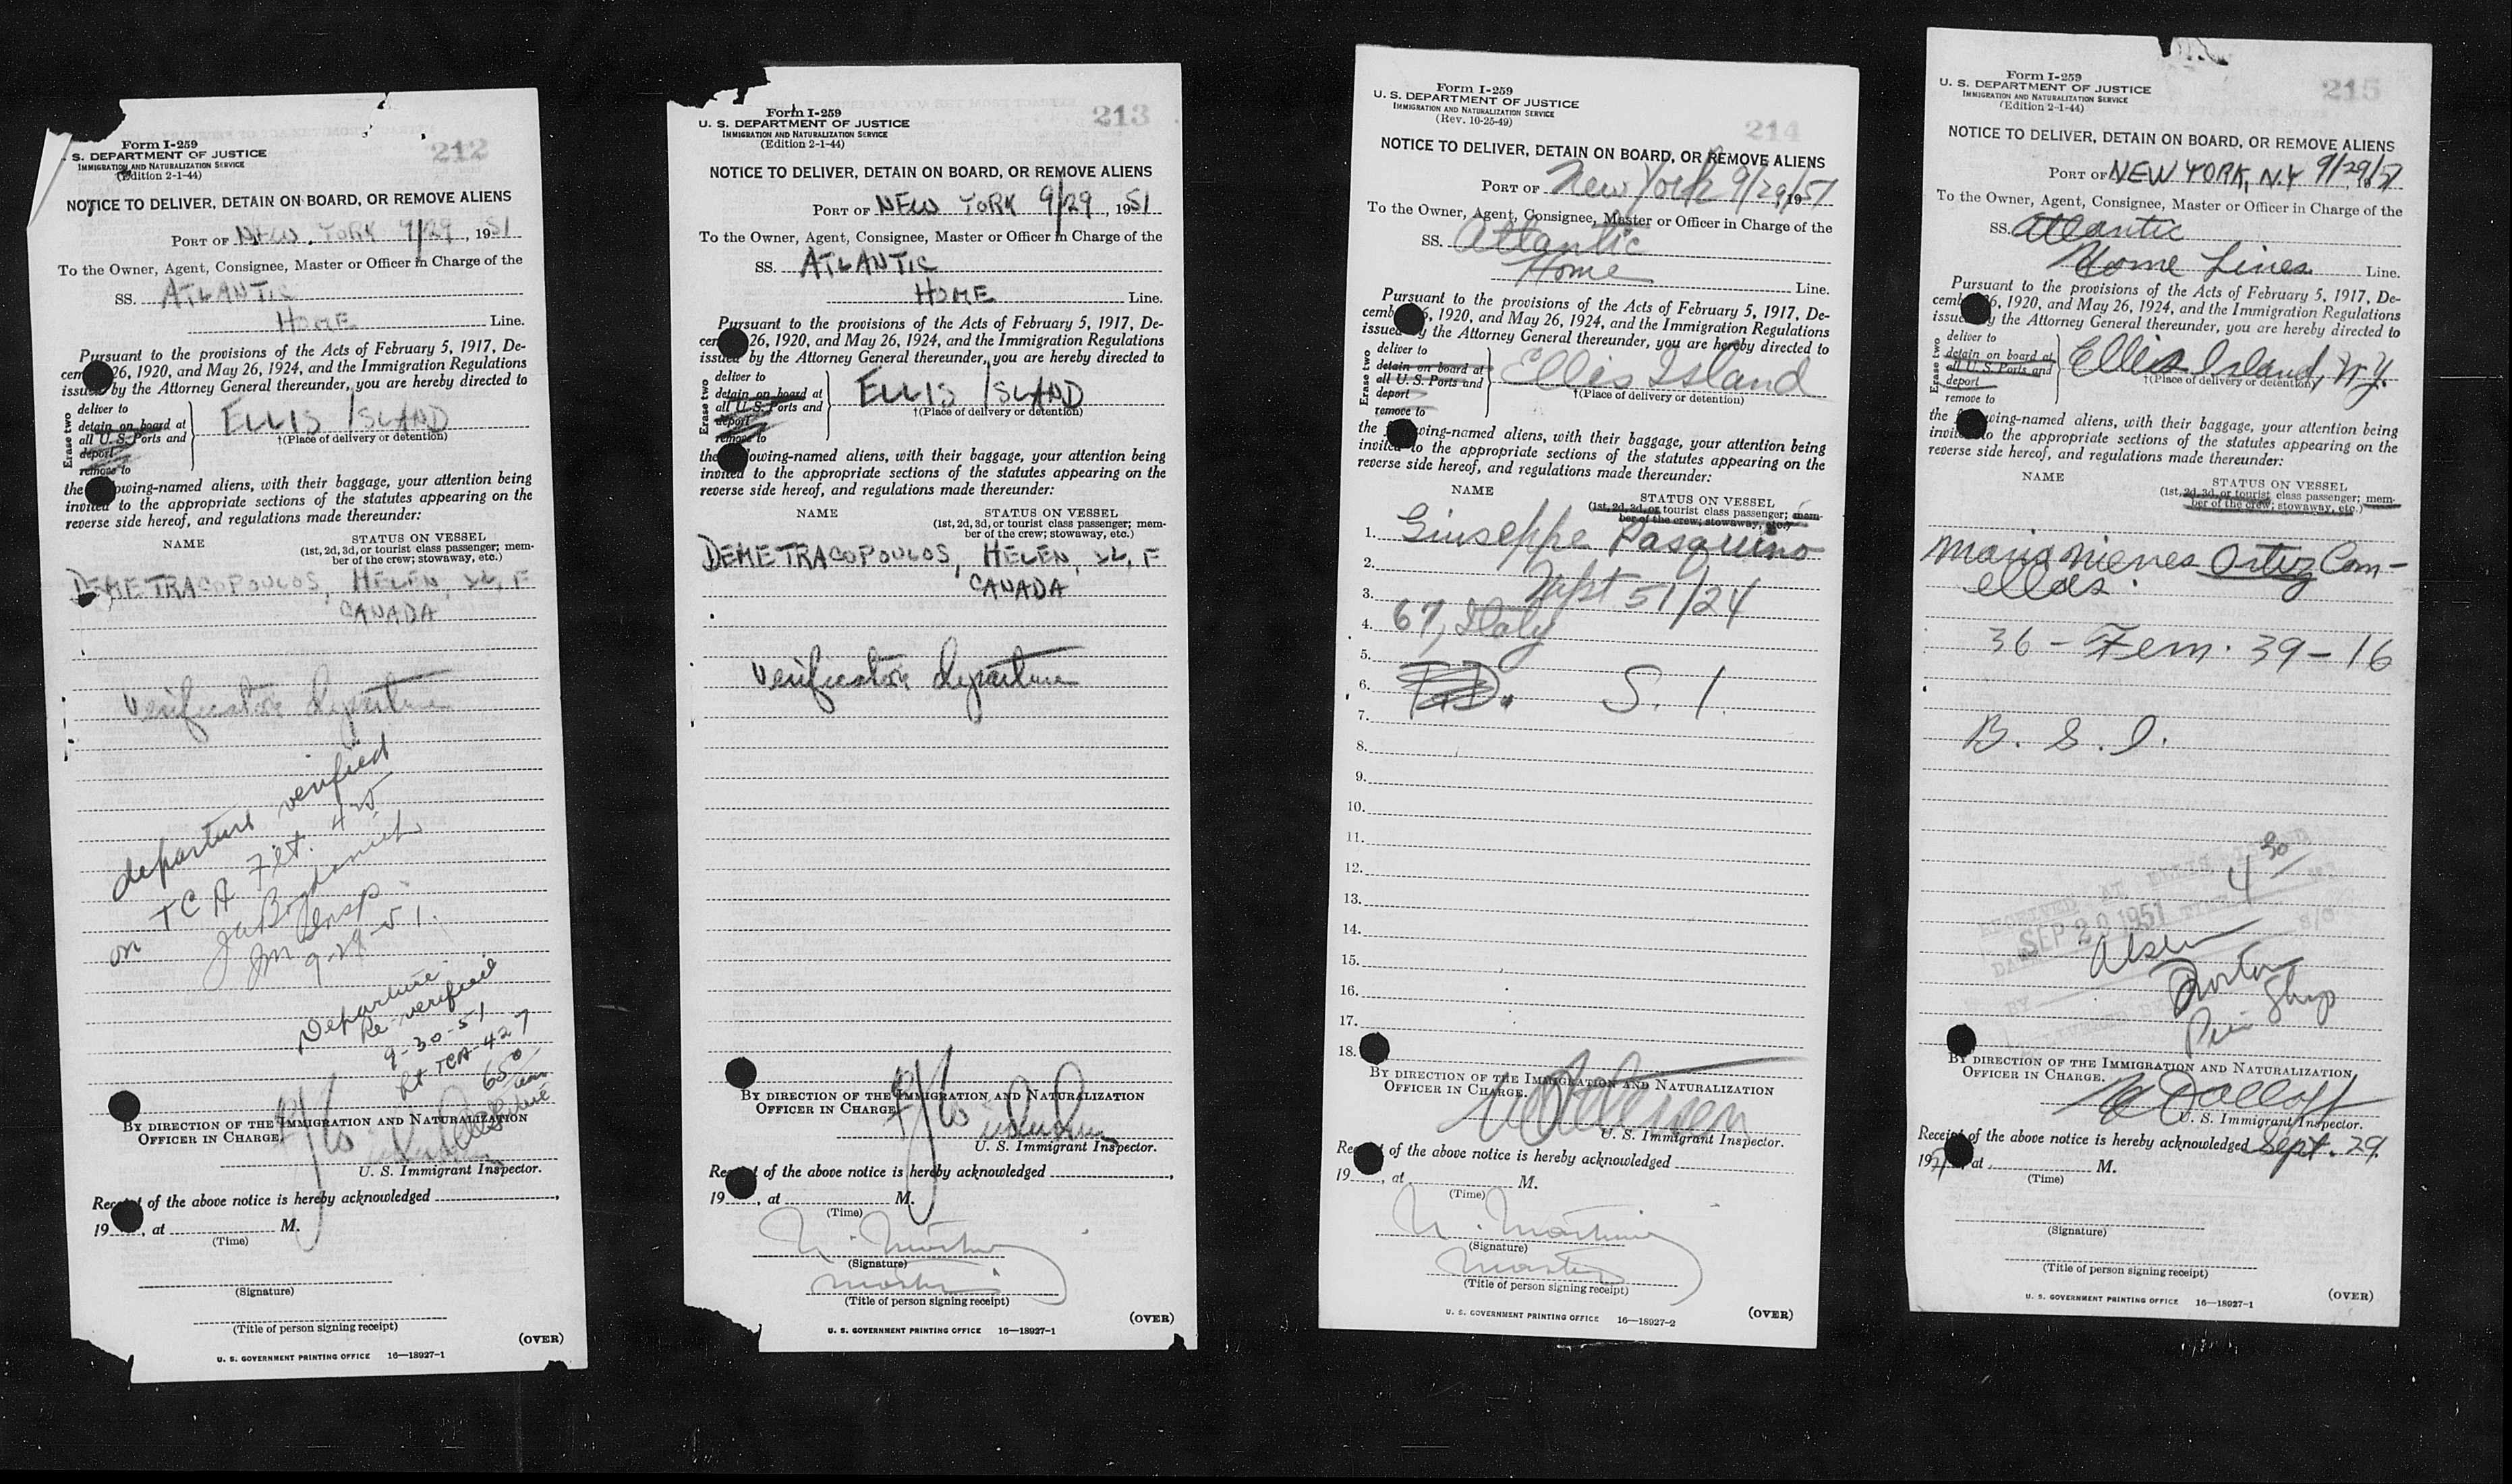 212
Form I-259
S. DEPARTMENT OF JUSTICE
IMMIGRATION AND NATURALIZATION SERVICE
(Edition 2-1-44)
NOTICE TO DELIVER, DETAIN ON BOARD, OR REMOVE ALIENS
PORT OF NEW YORK 9/29, 1951
To the Owner, Agent, Consignee, Master or Officer in Charge of the
SS. ATLANTIC
HOME Line.
Pursuant to the provisions of the Acts of February 5, 1917, De-
cem 26, 1920, and May 26, 1924, and the Immigration Regulations
issued by the Attorney General thereunder, you are hereby directed to
Erase two
deliver to
detain on board at
all U. S. Ports and
deport
remove to
ELLIS ISLAND
†(Place of delivery or detention)
the owing-named aliens, with their baggage, your attention being
invited to the appropriate sections of the statutes appearing on the
reverse side hereof, and regulations made thereunder:
NAME STATUS ON VESSEL
(1st, 2d, 3d, or tourist class passenger; mem-
ber of the crew; stowaway, etc.)
DEMETRACOPOULOS, HELEN, F
CANADA
Verification departure
departure verified
on TCA Flt. 425
Insp
9-29-51.
Departure
Re-verified
9-30-51
TCA-427
BY DIRECTION OF THE IMMIGRATION AND NATURALIZATION
OFFICER IN CHARGE.
U. S. Immigrant Inspector.
Receipt of the above notice is hereby acknowledged
19 , at M.
(Time)
(Signature)
(Title of person signing receipt)
(OVER)
U. S. GOVERNMENT PRINTING OFFICE 16—18927-1
213
Form I-259
U. S. DEPARTMENT OF JUSTICE
IMMIGRATION AND NATURALIZATION SERVICE
(Edition 2-1-44)
NOTICE TO DELIVER, DETAIN ON BOARD, OR REMOVE ALIENS
PORT OF NEW YORK 9/29, 1951
To the Owner, Agent, Consignee, Master or Officer in Charge of the
SS. ATLANTIC
HOME Line.
Pursuant to the provisions of the Acts of February 5, 1917, De-
cem 26, 1920, and May 26, 1924, and the Immigration Regulations
issued by the Attorney General thereunder, you are hereby directed to
Erase two
deliver to
detain on board at
all U. S. Ports and
deport
remove to
ELLIS ISLAND
†(Place of delivery or detention)
the lowing-named aliens, with their baggage, your attention being
invited to the appropriate sections of the statutes appearing on the
reverse side hereof, and regulations made thereunder:
NAME STATUS ON VESSEL
(1st, 2d, 3d, or tourist class passenger; mem-
ber of the crew; stowaway, etc.)
DEMETRACOPOULOS, HELEN, F
CANADA
Verification departure
BY DIRECTION OF THE IMMIGRATION AND NATURALIZATION
OFFICER IN CHARGE.
U. S. Immigrant Inspector.
Receipt of the above notice is hereby acknowledged
19 , at M.
(Time)
(Signature)
(Title of person signing receipt)
(OVER)
U. S. GOVERNMENT PRINTING OFFICE 16—18927-1
214
Form I-259
U. S. DEPARTMENT OF JUSTICE
IMMIGRATION AND NATURALIZATION SERVICE
(Rev. 10-25-49)
NOTICE TO DELIVER, DETAIN ON BOARD, OR REMOVE ALIENS
PORT OF New York 9/29/51, 19
To the Owner, Agent, Consignee, Master or Officer in Charge of the
SS. Atlantic
Home Line.
Pursuant to the provisions of the Acts of February 5, 1917, De-
cemb 6, 1920, and May 26, 1924, and the Immigration Regulations
issued by the Attorney General thereunder, you are hereby directed to
Erase two
deliver to
detain on board at
all U. S. Ports and
deport
remove to
Ellis Island
†(Place of delivery or detention)
the wing-named aliens, with their baggage, your attention being
invited to the appropriate sections of the statutes appearing on the
reverse side hereof, and regulations made thereunder:
NAME STATUS ON VESSEL
(1st, 2d, 3d, or tourist class passenger; mem-
ber of the crew; stowaway, etc.)
1. Giuseppe Pasquino
2.
3. 51/24
4. 67, Italy
5.
6. S. I.
7.
8.
9.
10.
11.
12.
13.
14.
15.
16.
17.
18.
BY DIRECTION OF THE IMMIGRATION AND NATURALIZATION
OFFICER IN CHARGE.
U. S. Immigrant Inspector.
Receipt of the above notice is hereby acknowledged
19 , at M.
(Time)
(Signature)
(Title of person signing receipt)
(OVER)
U. S. GOVERNMENT PRINTING OFFICE 16—18927-2
215
Form I-259
U. S. DEPARTMENT OF JUSTICE
IMMIGRATION AND NATURALIZATION SERVICE
(Edition 2-1-44)
NOTICE TO DELIVER, DETAIN ON BOARD, OR REMOVE ALIENS
PORT OF NEW YORK, N.Y 9/29/51
To the Owner, Agent, Consignee, Master or Officer in Charge of the
SS. Atlantic
Home Lines Line.
Pursuant to the provisions of the Acts of February 5, 1917, De-
cemb 6, 1920, and May 26, 1924, and the Immigration Regulations
issued by the Attorney General thereunder, you are hereby directed to
Erase two
deliver to
detain on board at
all U. S. Ports and
deport
remove to
Ellis Island, N.Y.
†(Place of delivery or detention)
the wing-named aliens, with their baggage, your attention being
invited to the appropriate sections of the statutes appearing on the
reverse side hereof, and regulations made thereunder:
NAME STATUS ON VESSEL
(1st, 2d, 3d, or tourist class passenger; mem-
ber of the crew; stowaway, etc.)
Maria Nieves Ortiz Com-
ellas.
36 - Fem. 39-16
B. S. I.
RECEIVED AT ELLIS ISLAND
SEP 20 1951 TIME 4 30
BY
BY DIRECTION OF THE IMMIGRATION AND NATURALIZATION
OFFICER IN CHARGE.
U. S. Immigrant Inspector.
Receipt of the above notice is hereby acknowledged Sept. 29.
1951 at M.
(Time)
(Signature)
(Title of person signing receipt)
(OVER)
U. S. GOVERNMENT PRINTING OFFICE 16—18927-1